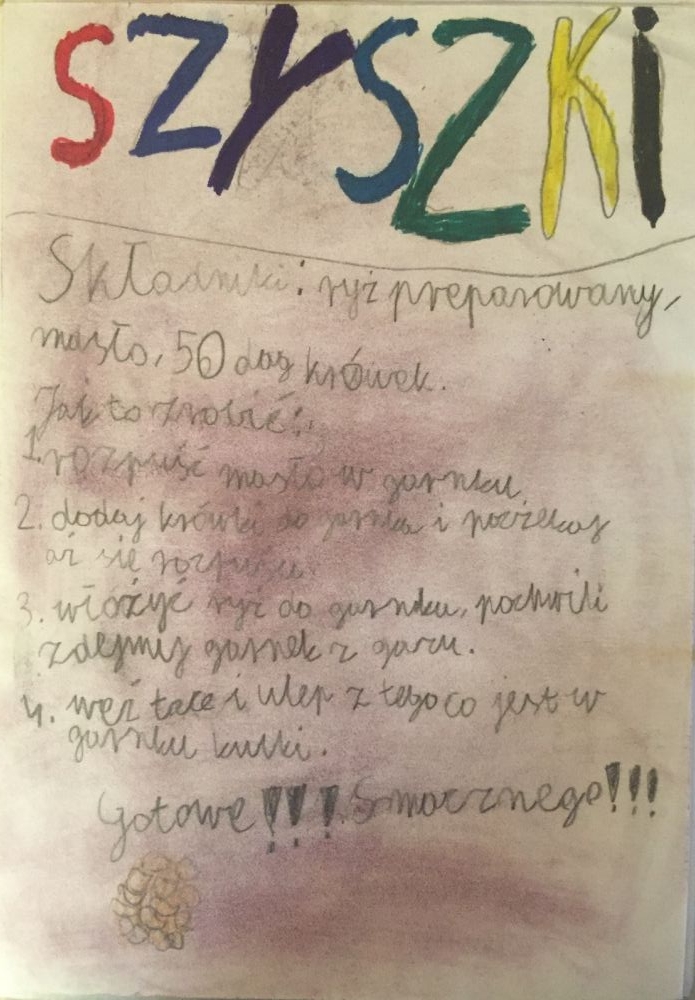 SZYSZKi
Składniki: ryż preparowany,
masło, 50 dag krówek.
Jak to zrobić:
1. rozpuść masło w garnku
2. dodaj krówki do garnka i poczekaj
aż się rozpuszczą.
3. włożyć ryż do garnku, pochwili
zdejmij garnek z gazu.
4. weź tace i ulep z tego co jest w
garnku kulki.
Gotowe!!! Smacznego!!!